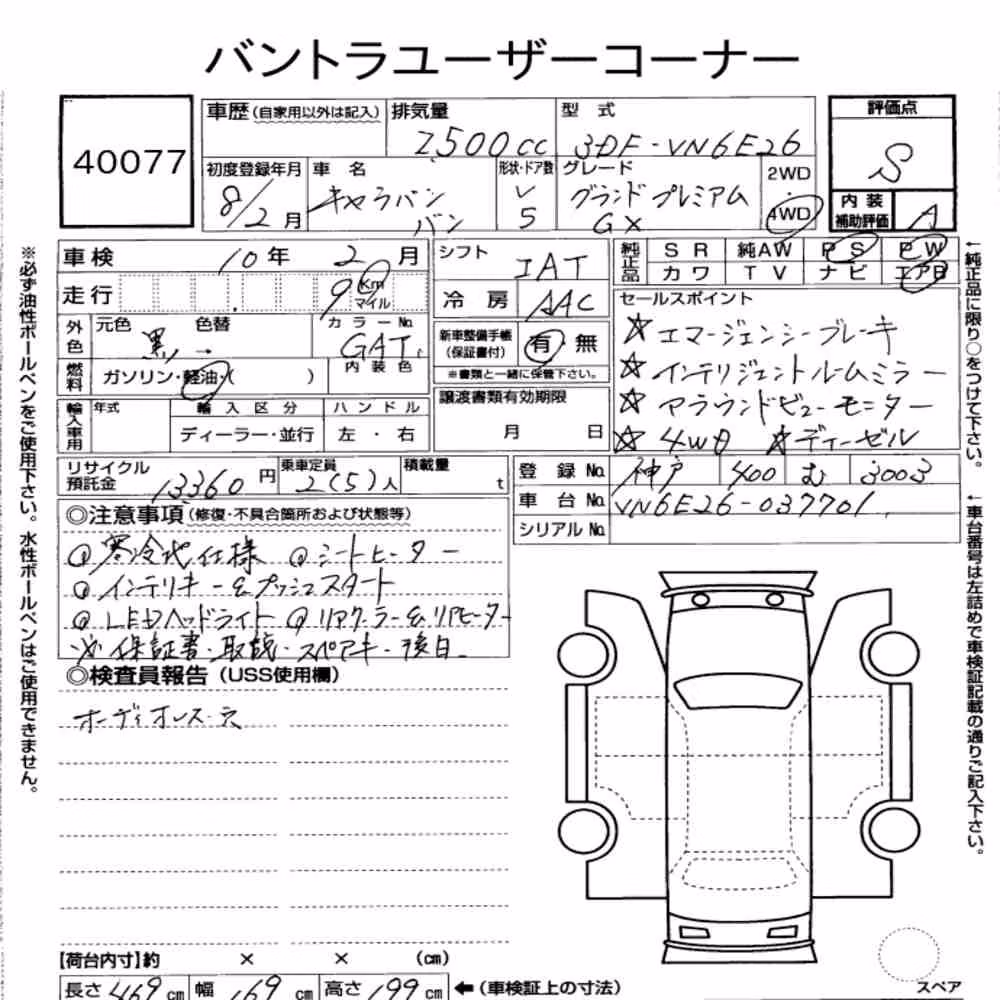 バントラユーザーコーナー
40077
車歴(自家用以外は記入)
排気量 2500cc
型式 3DF-VN6E26
評価点 S
初度登録年月 8/2月
車名 キャラバン バン
形状・ドア数 V 5
グレード グランドプレミアム GX
2WD・4WD
内装補助評価 A
車検 10年 2月
シフト IAT
純正品 SR 純AW PS PW
カワ TV ナビ エアB
走行 9 Km マイル
冷房 AAC
外色 元色 黒 色替 カラーNo. GAT
新車整備手帳(保証書付) 有・無
※書類と一緒に保管下さい。
セールスポイント
☆エマージェンシーブレーキ
☆インテリジェントルームミラー
☆アラウンドビューモニター
☆4WD ☆ディーゼル
燃料 ガソリン・軽油・( )
内装色
輸入車用 年式 輸入区分 ハンドル
ディーラー・並行 左・右
譲渡書類有効期限
月 日
リサイクル預託金 13360円
乗車定員 2(5)人
積載量 t
登録No. 神戸 400 む 3003
車台No. VN6E26-037701
シリアルNo.
◎注意事項(修復・不具合箇所および状態等)
◎寒冷地仕様 ◎シートヒーター
◎インテリキー&プッシュスタート
◎LEDヘッドライト ◎リアクーラー&リアヒーター
※保証書・取説・スペアキー後日
◎検査員報告(USS使用欄)
オーディオレス・穴
【荷台内寸】約 × × (cm)
長さ 469cm 幅 169cm 高さ 199cm ←(車検証上の寸法)
スペア
※必ず油性ボールペンをご使用下さい。水性ボールペンはご使用できません。
←純正品に限り○をつけて下さい。
←車台番号は左詰めで車検証記載の通りご記入下さい。